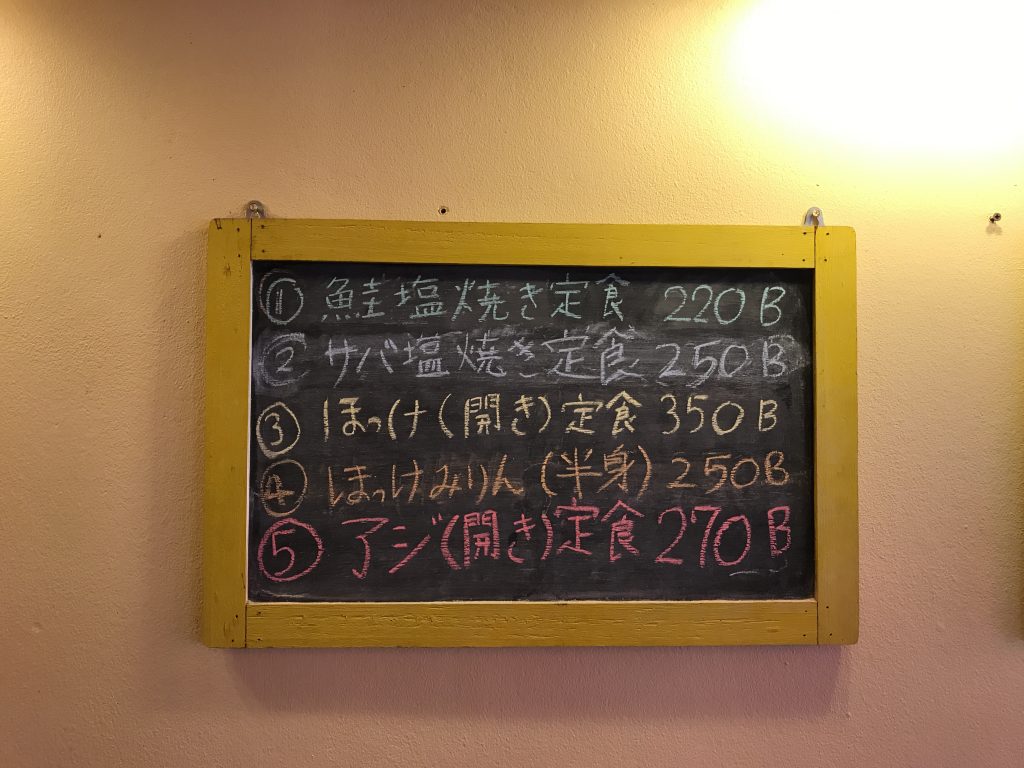 ① 鮭塩焼き定食 220B
② サバ塩焼き定食 250B
③ ほっけ(開き)定食 350B
④ ほっけみりん(半身) 250B
⑤ アジ(開き)定食 270B